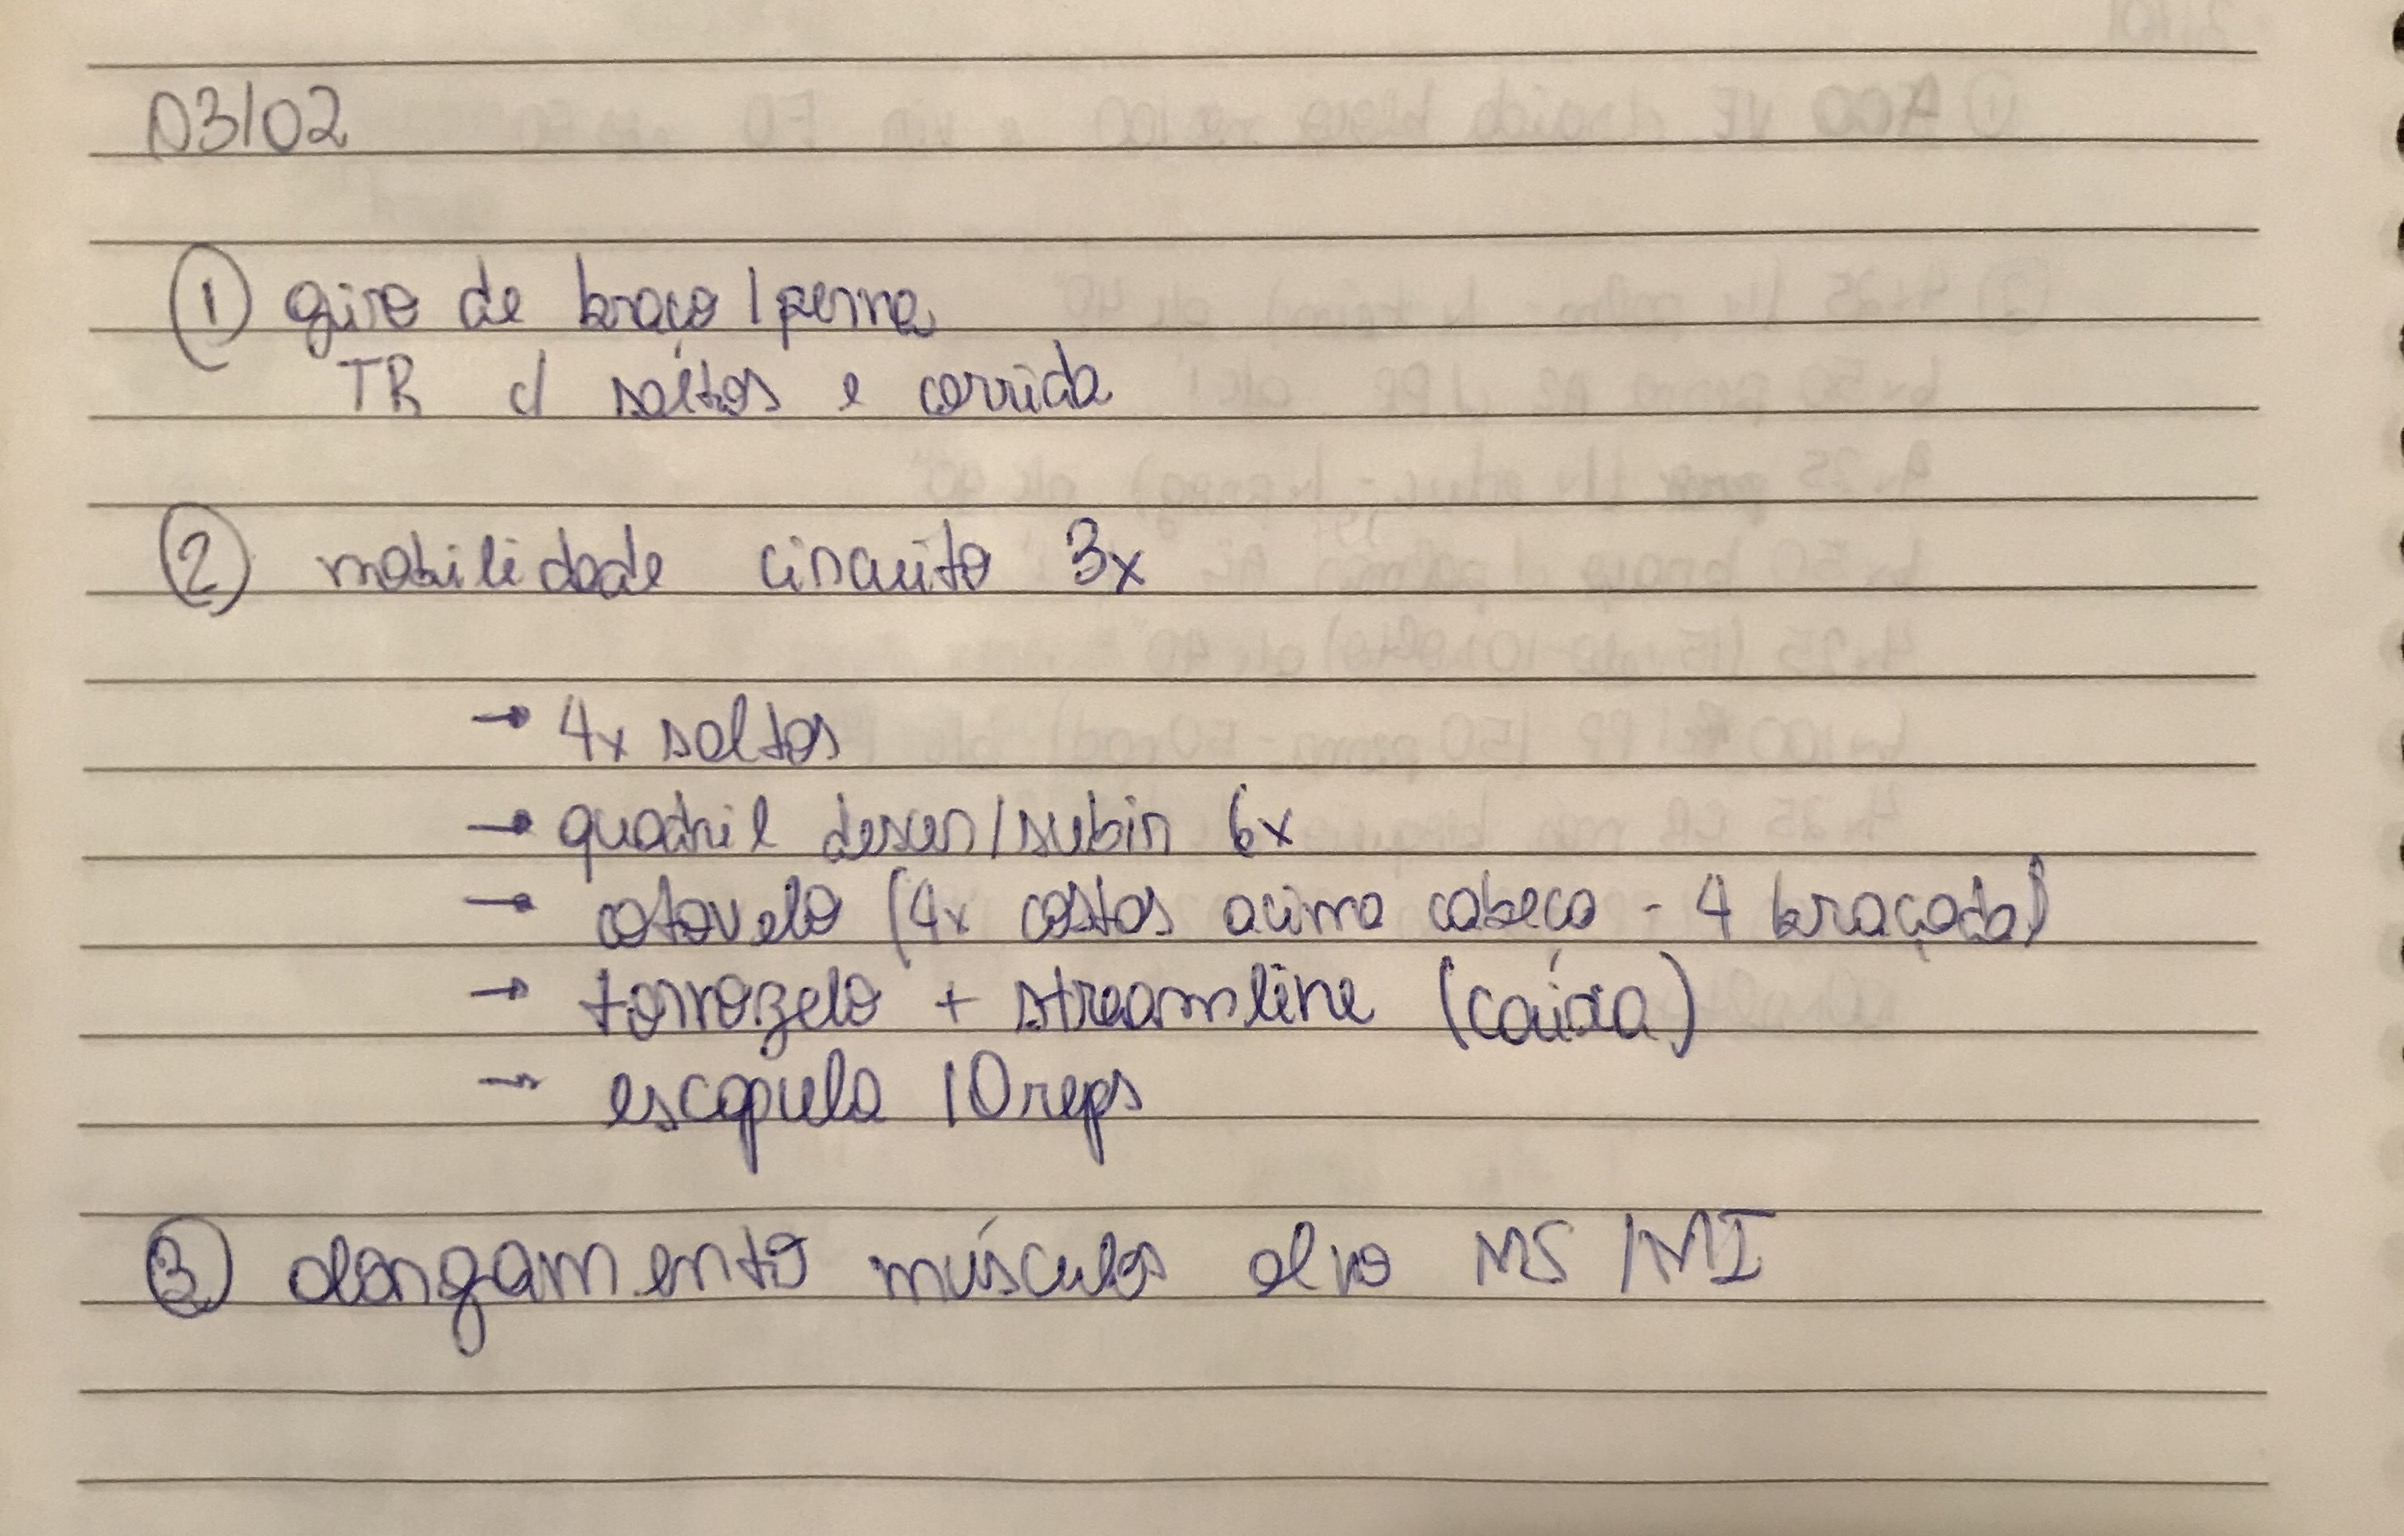 03/02
① giro de braço/perna
TR c/ saltos e corrida
② mobilidade circuito 3x
→ 4x saltos
→ quadril descer/subir 6x
→ cotovelo (4x costas acima cabeça - 4 braçada)
→ tornozelo + streamline (caixa)
→ escapula 10 reps
③ alongamento músculos alvo MS/MI